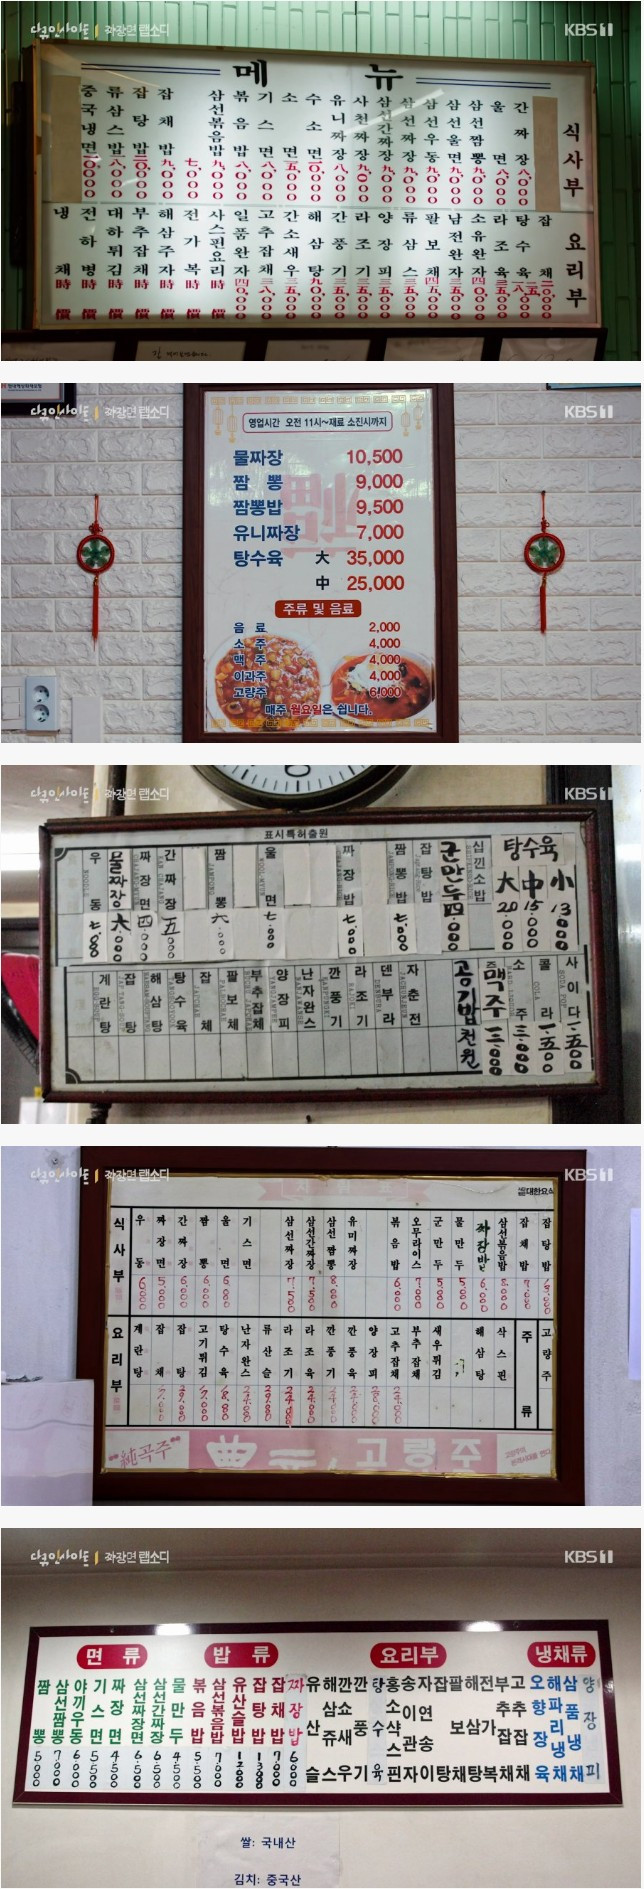 다큐인사이트 짜장면 랩소디
KBS1
메 뉴
식사부
간짜장 八,000
울면 八,000
삼선짬뽕 九,000
삼선울면 九,000
삼선우동 九,000
삼선짜장 九,000
삼선간짜장 九,000
사천짜장 九,000
유니짜장 八,000
수소면 一0,000
소면
기스면 八,000
볶음밥 八,000
삼선볶음밥 九,000
七,000
잡채밥 九,000
잡탕밥
류삼스밥
중국냉면 一0,000
요리부
잡채
탕수육
라조육
소유완자
남전완자
팔보채
류삼스
양장피
라조기
간풍기
해삼탕
간소새우
고추잡채
일품완자
사스핀요리 時價
전가복 時價
해삼주자 時價
부추잡채 時價
대하튀김 時價
전하병 時價
냉채 時價
다큐인사이트 짜장면 랩소디
KBS1
영업시간 오전 11시~재료 소진시까지
물짜장 10,500
짬 뽕 9,000
짬뽕밥 9,500
유니짜장 7,000
탕수육 大 35,000
中 25,000
주류 및 음료
음 료 2,000
소 주 4,000
맥 주 4,000
이과주 4,000
고량주 6,000
매주 월요일은 쉽니다.
다큐인사이트 짜장면 랩소디
KBS1
표시특허출원
우동
물짜장 六,000
짜장면 四,000
간짜장 五,000
짬뽕 六,000
울면 七,000
짜장밥 七,000
짬뽕밥 七,000
잡탕밥
군만두 四,000
십낀소밥
탕수육
大 20,000
中 15,000
小 13,000
게란탕
잡탕
해삼탕
탕수육
잡체
팔보체
부추잡체
양장피
난자완스
깐풍기
라조기
덴부라
자춘전
공기밥 천원
맥주 三,000
소주 三,000
콜라 一,500
사이다 一,500
다큐인사이트 짜장면 랩소디
KBS1
대한요식
식사부
우동 6,000
짜장면 5,000
간짜장 6,000
짬뽕 6,000
울면
기스면
삼선짜장 7,500
삼선간짜장 7,500
삼선짬뽕 8,000
유미짜장
볶음밥 6,000
오무라이스 7,000
군만두
물만두
짜장밥 6,000
삼선볶음밥 8,000
잡채밥
잡탕밥
요리부
게란탕
잡채
잡탕
고기튀김
탕수육
난자완스
류산슬
라조기
라조육
깐풍기
깐풍육
양장피
고추잡채
부추잡채
새우튀김
해삼탕
삭스핀
주류
고량주
純곡주
고량주
다큐인사이트 짜장면 랩소디
KBS1
면 류
밥 류
요리부
냉채류
짬뽕 5,500
삼선짬뽕 7,000
야끼우동 6,000
기스면 5,500
짜장면 4,500
삼선짜장면 6,500
삼선간짜장 6,500
물만두 4,500
볶음밥 5,500
삼선볶음밥 7,000
유산슬밥
잡탕밥
잡채밥 7,000
짜장밥 6,000
유산슬
해삼쥬스
깐쇼새우
깐풍기
탕수육
홍소삭스핀
송이관자
자연송이
잡탕
팔보채
해삼탕
전가복
부추잡채
고추잡채
오향장육
해파리냉채
삼품냉채
양장피
쌀: 국내산
김치: 중국산